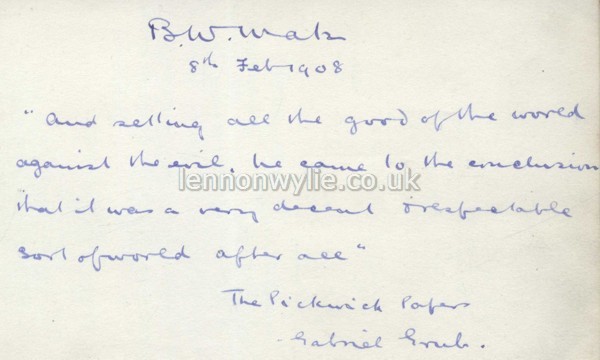 B.W.
8th Feb 1908
"And setting all the good of the world
against the evil, he came to the conclusion
lennonwylie.co.uk
that it was a very decent & respectable
sort of world after all"
The Pickwick Papers
Gabriel Grub.